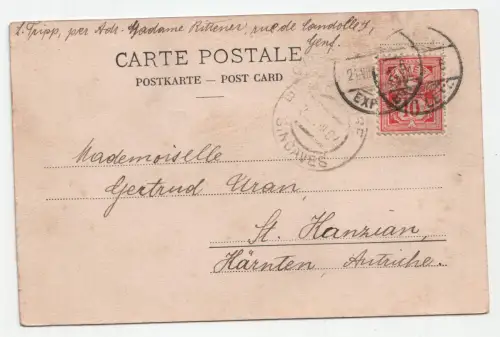 L. Tripp, per Adr. Madame Rittener, rue de Candolle
Genf.
CARTE POSTALE
POSTKARTE — POST CARD
EXP
EAUX-VIVES
Mademoiselle
Gertrud Uran,
St. Kanzian,
Kärnten, Autriche.